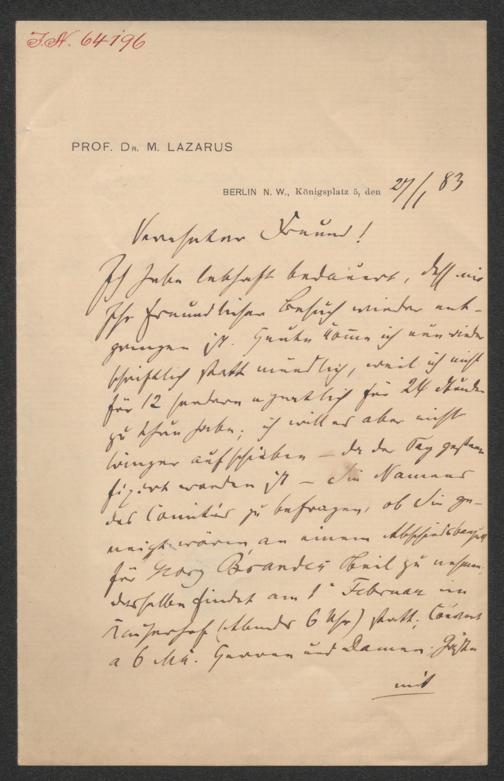 J.N. 64196
PROF. DR. M. LAZARUS
BERLIN N. W., Königsplatz 5, den 27/1 83
Verehrter Freund!
Ich habe lebhaft bedauert, daß mir
Ihr freundlicher Besuch wieder ent-
gangen ist. Heute komme ich nun wieder
schriftlich statt mündlich, weil ich nicht
für 12 sondern eigentlich für 24 Stunden
zu thun habe; ich will es aber nicht
länger aufschieben – da der Tag gestern
fixirt worden ist – Sie Namens
des Comités zu befragen, ob Sie ge-
neigt wären an einem Abschiedsbanquet
für Georg Brandes theil zu nehmen,
dasselbe findet am 1t Februar im
Kaiserhof (Abends 6 Uhr) statt; Couvert
a 6 Mk. Herren und Damen. Gäste
mit